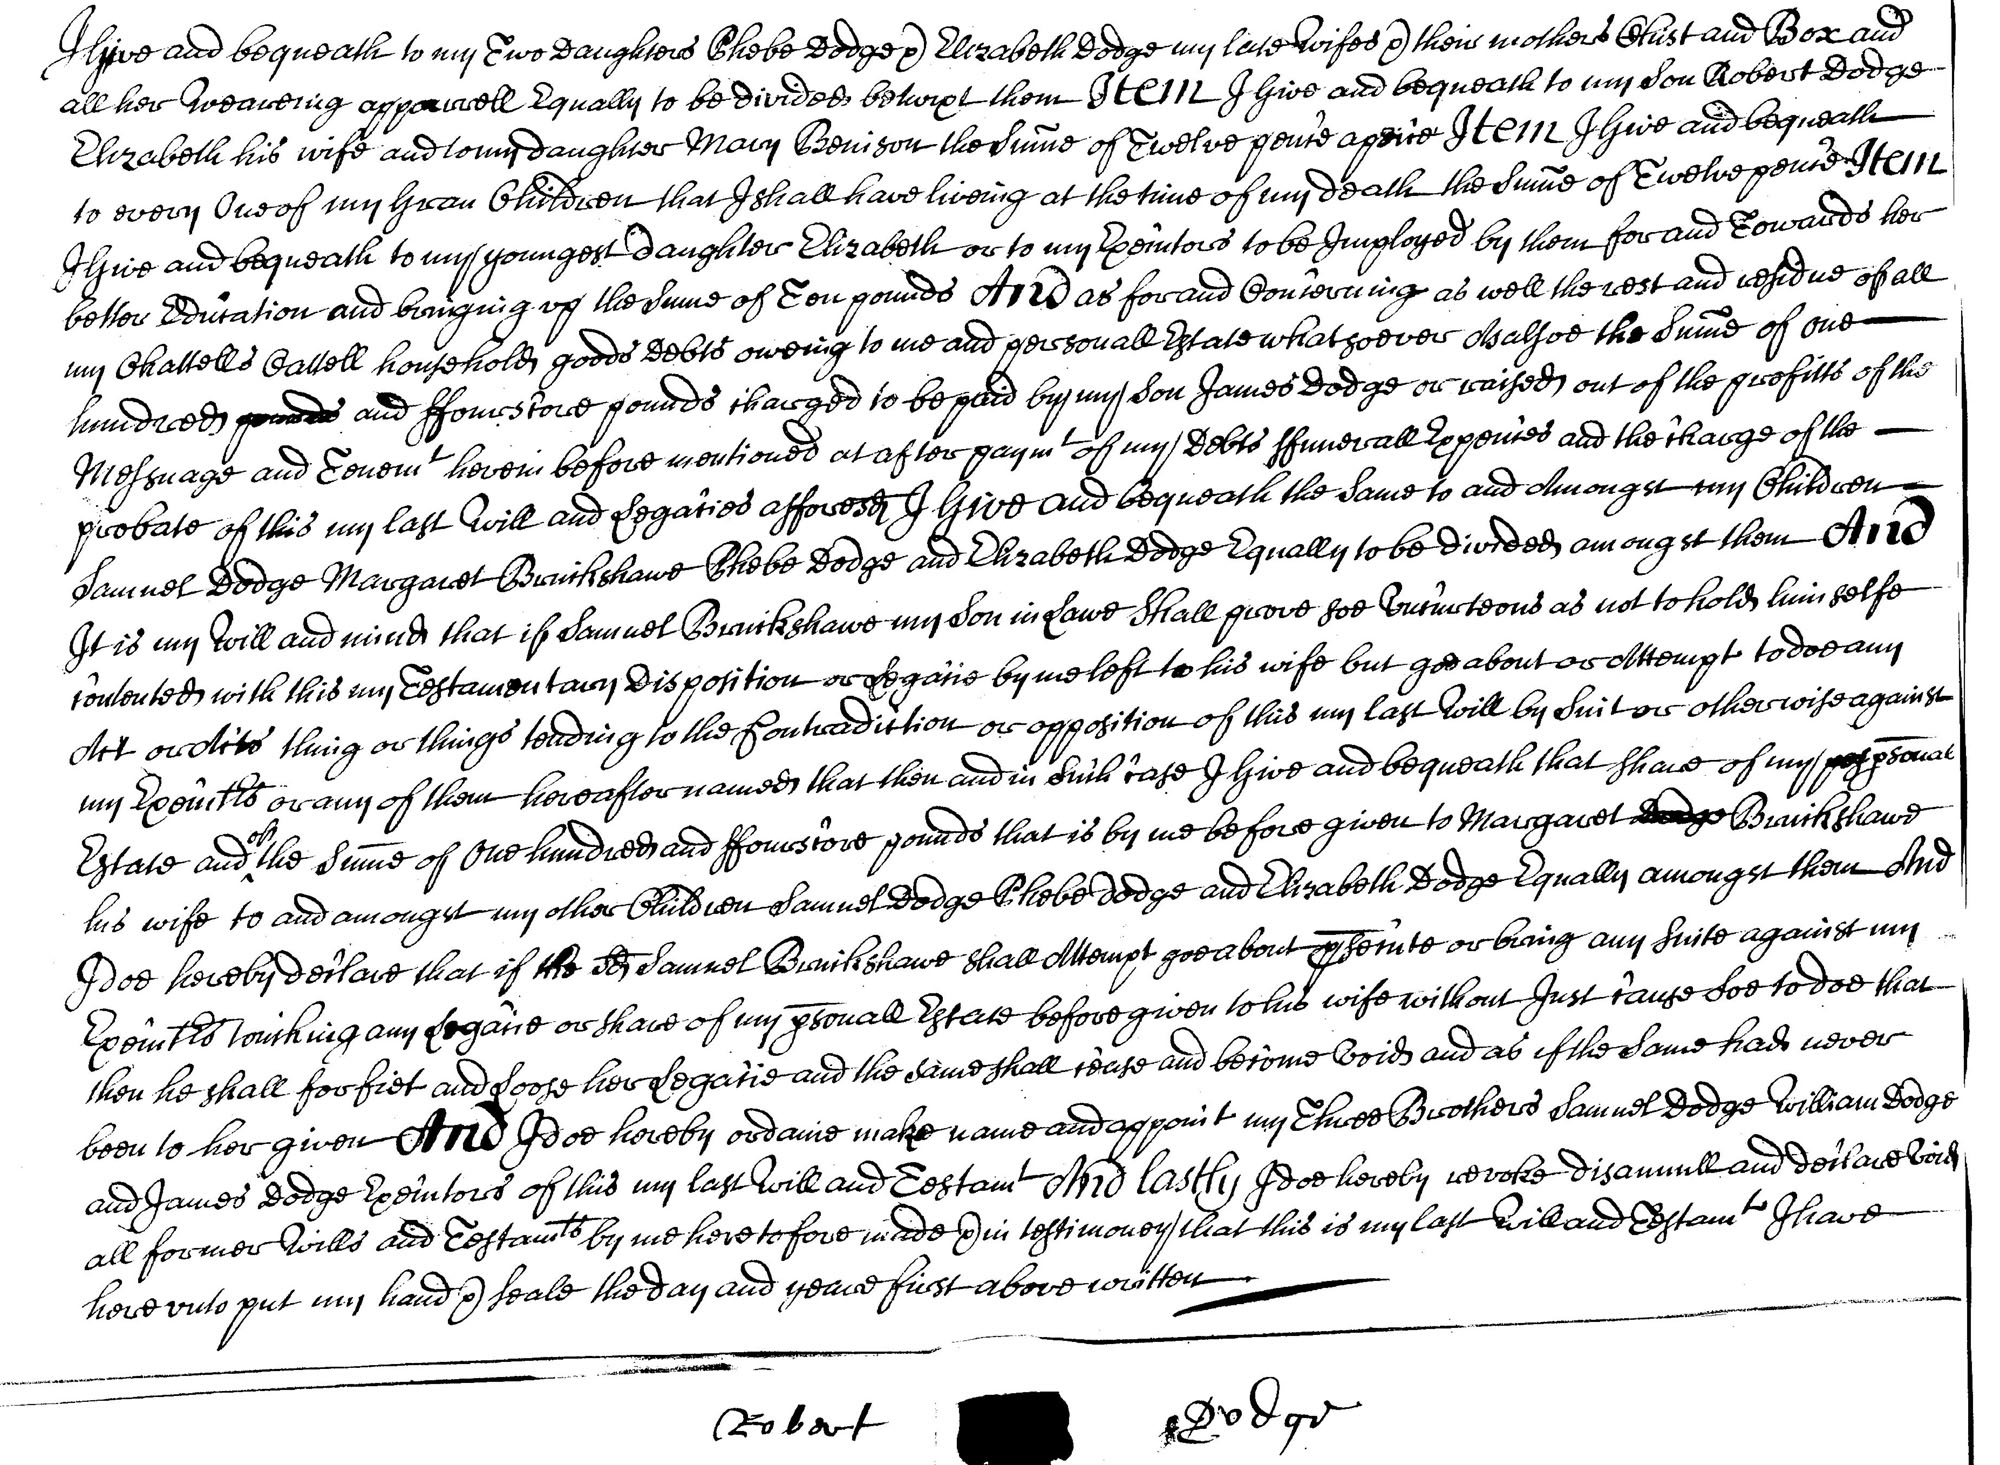 I give and bequeath to my Two Daughters Phebe Dodge & Elizabeth Dodge my late Wifes & their mothers Chist and Box and
all her Weareing apparrell Equally to be divided betwixt them Item I Give and bequeath to my Son Robert Dodge
Elizabeth his wife and to my daughter Mary Benison the Sume of Twelve pence apeice Item I Give and bequeath
to every One of my Gran Children that I shall have liveing at the time of my death the Sume of Twelve pence Item
I Give and bequeath to my youngest daughter Elizabeth or to my Execûtors to be Imployed by them for and Towards her
better Education and bringing vp the Sume of Ten pounds And as for and Concerning as well the rest and residue of all
my Chattells Cattell household goods Debts oweing to me and personall Estate whatsoever As alsoe the Sume of one
hundred pounds and ffourscore pounds charged to be paid by my Son James Dodge or raised out of the profitts of the
Messuage and Tenemt herein before mentioned at after paymt of my Debts ffunerall Expences and the charge of the
probate of this my last Will and Legacies afforesd I Give and bequeath the Same to and Amongst my Children
Samuel Dodge Margaret Bruckshawe Phebe Dodge and Elizabeth Dodge Equally to be divided amongst them And
It is my Will and mind that if Samuel Bruckshawe my Son in Lawe Shall prove soe Vncurteous as not to hold himselfe
contented with this my Testamentary Disposition or Legacie by me left to his wife but goe about or Attempt to doe any
Act or Acts thing or things tending to the Contradiction or opposition of this my last Will by Suit or otherwise against
my Execûtrs or any of them hereafter named that then and in Such case I Give and bequeath that share of my psonal
Estate and of the Sume of One hundred and ffourscore pounds that is by me before given to Margaret Dodge Bruckshawe
his wife to and amongst my other Children Samuel Dodge Phebe dodge and Elizabeth Dodge Equally amongst them And
I doe hereby declare that if the sd Samuel Bruckshawe shall Attempt goe about psecute or bring any Suite against my
Execûtrs touching any Legacie or share of my psonall Estate before given to his wife without Just cause Soe to doe that
then he shall forfiet and Loose her Legacie and the same shall cease and become Void and as if the Same had never
been to her given And I doe hereby ordaine make name and appoint my Three Brothers Samuel Dodge William Dodge
and James Dodge Execûtors of this my last Will and Testamt And lastly I doe hereby revoke disannull and declare void
all former Wills and Testamts by me heretofore made & in testimoney that this is my last Will and Testamt I have
here vnto put my hand & seale the day and yeare first above written
Robert Dodge